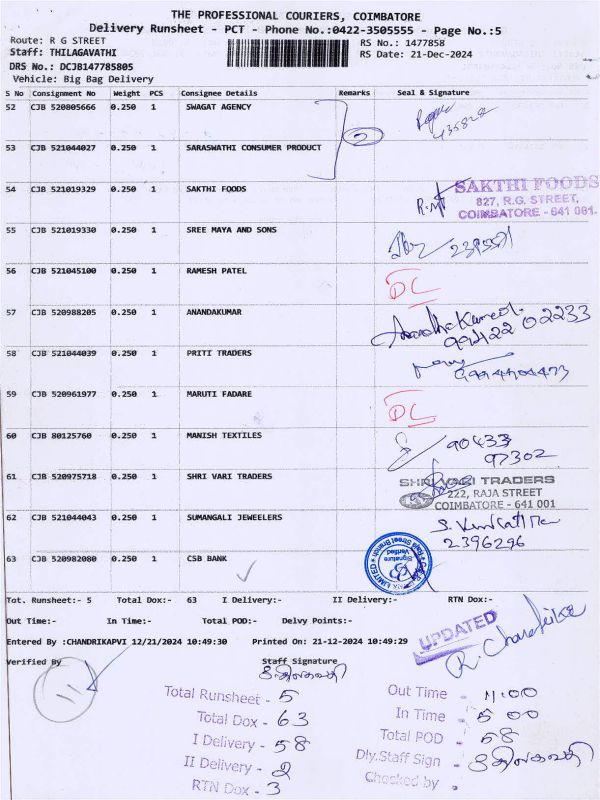 THE PROFESSIONAL COURIERS, COIMBATORE
Delivery Runsheet - PCT - Phone No.:0422-3505555 - Page No.:5
Route: R G STREET
RS No.: 1477858
Staff: THILAGAVATHI
RS Date: 21-Dec-2024
DRS No.: DCJB147785805
Vehicle: Big Bag Delivery
S No Consignment No Weight PCS Consignee Details Remarks Seal & Signature
52 CJB 520805666 0.250 1 SWAGAT AGENCY
2
53 CJB 521044027 0.250 1 SARASWATHI CONSUMER PRODUCT
54 CJB 521019329 0.250 1 SAKTHI FOODS
SAKTHI FOODS
827, R.G. STREET,
COIMBATORE - 641 001.
55 CJB 521019330 0.250 1 SREE MAYA AND SONS
56 CJB 521045100 0.250 1 RAMESH PATEL
DL
57 CJB 520988205 0.250 1 ANANDAKUMAR
99422 02233
58 CJB 521044039 0.250 1 PRITI TRADERS
59 CJB 520961977 0.250 1 MARUTI FADARE
DL
60 CJB 80125760 0.250 1 MANISH TEXTILES
90433
97302
61 CJB 520975718 0.250 1 SHRI VARI TRADERS
SHRI VARI TRADERS
222, RAJA STREET
COIMBATORE - 641 001
62 CJB 521044043 0.250 1 SUMANGALI JEWEELERS
2396296
63 CJB 520982080 0.250 1 CSB BANK
Signature
Verified
Tot. Runsheet:- 5 Total Dox:- 63 I Delivery:- II Delivery:- RTN Dox:-
Out Time:- In Time:- Total POD:- Delvy Points:-
UPDATED
Entered By :CHANDRIKAPVI 12/21/2024 10:49:30 Printed On: 21-12-2024 10:49:29
Verified By Staff Signature
Total Runsheet - 5
Total Dox - 63
I Delivery - 58
II Delivery - 2
RTN Dox - 3
Out Time - 11:00
In Time - 5 00
Total POD - 58
Dly.Staff Sign -
Checked by -